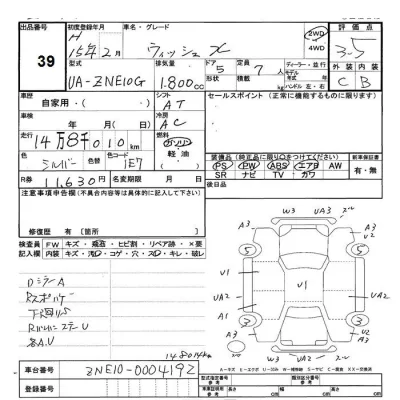 出品番号 初度登録年月 車名・グレード 2WD 評価点
39 H 15年2月 ウィッシュ X 4WD 3.5
型式 排気量 ドア形状 定員 ディーラー・並行 外装 内装
UA-ZNE10G 1.800cc 5 7人 モデル年式 ハンドル 左・右 C B
車歴 シフト セールスポイント (正常に機能するものに限ります)
自家用・( ) AT
車検 冷房
年 月 AC
走行 燃料
14万8千010km ガソリン 軽油
色 色替 色コード
シルバー 1E7
装備品 (純正品に限り○をつけてください) 新車保証書
PS PW ABS エアB AW 有・無
SR ナビ TV カワ
R券 11,630円 名変期限 月 日 後日品
注意事項申告欄(不具合内容等は具体的に記入して下さい)
修復歴 有〔箇所 〕
検査員記入欄 FW キズ・飛石・ヒビ割・リペア跡・×要
内装 キズ・汚れ・コゲ・穴・スレ・キレ・破レ
DミラーA
下廻りS
148010km
車台番号 ZNE10-0004192
登録番号
W3 UA3
A3 A3
5 5 U2
V1 V1 UA2
UA2 A1
3 3
A1 A3
A3
UA2 W3
A・キズ E・エクボ U・凹み W・補修跡 S・サビ C・腐食 XX・交換済
型式指定番号 類別区分番号
長さ cm 幅 cm 高さ cm